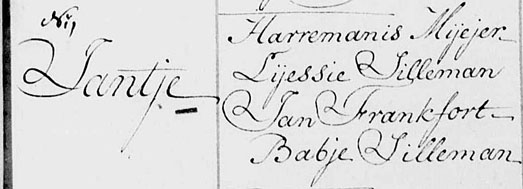 Jantje
Harremanis Mijejer
Lijessie Silleman
Jan Frankfort
Babje Silleman